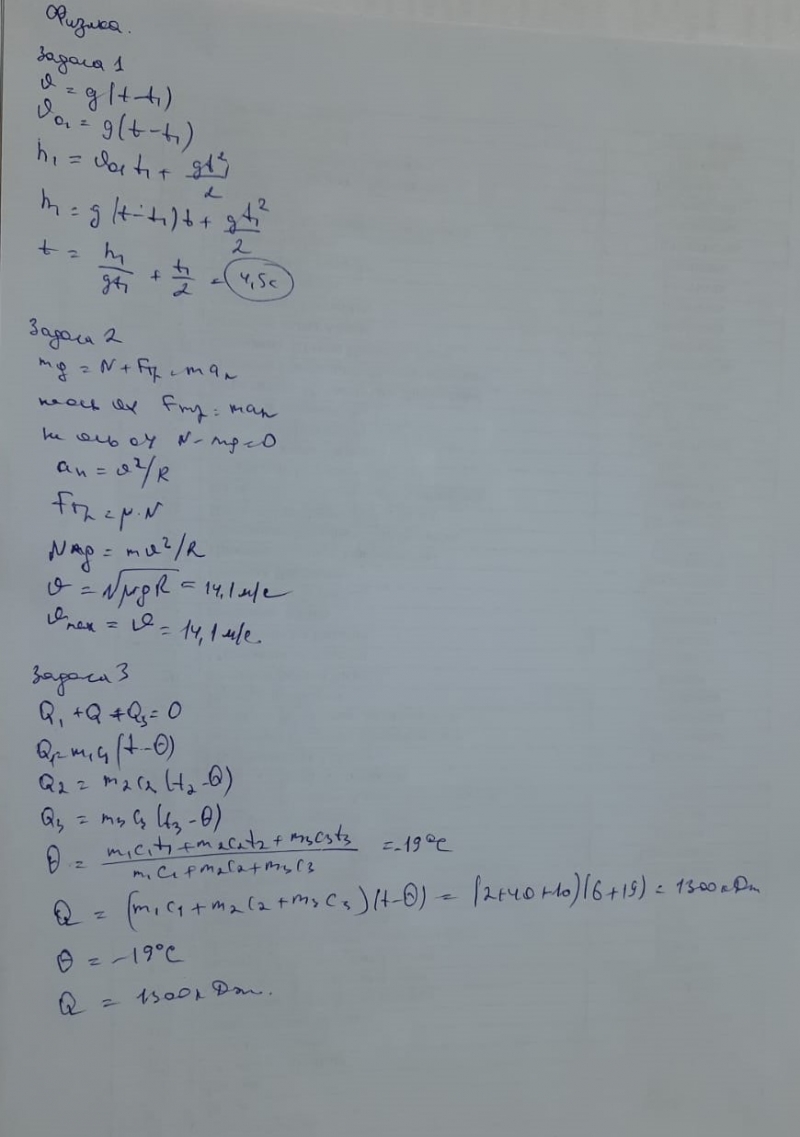 Физика.
Задача 1
v = g(t-t₁)
v₀₁ = g(t-t₁)
h₁ = v₀₁ t₁ + gt₁²/2
h₁ = g(t-t₁)t + gt₁²/2
t = h₁/gt₁ + t₁/2 = 4,5с
Задача 2
mg = N + Fтр = maₙ
на ось ox Fтр = maₙ
на ось oy N - mg = 0
aₙ = v²/R
Fтр = μ·N
= mv²/R
v = √μgR = 14,1 м/с
vmax = v = 14,1 м/с
Задача 3
Q₁ + Q + Q₃ = 0
Q₁ = m₁c₁(t-Θ)
Q₂ = m₂c₂(t₂-Θ)
Q₃ = m₃c₃(t₃-Θ)
Θ = m₁c₁t₁ + m₂c₂t₂ + m₃c₃t₃ / m₁c₁ + m₂c₂ + m₃c₃ = -19°C
Q = (m₁c₁ + m₂c₂ + m₃c₃)(t-Θ) = (2+40+10)(6+19) = 1300кДж
Θ = -19°C
Q = 1300кДж.